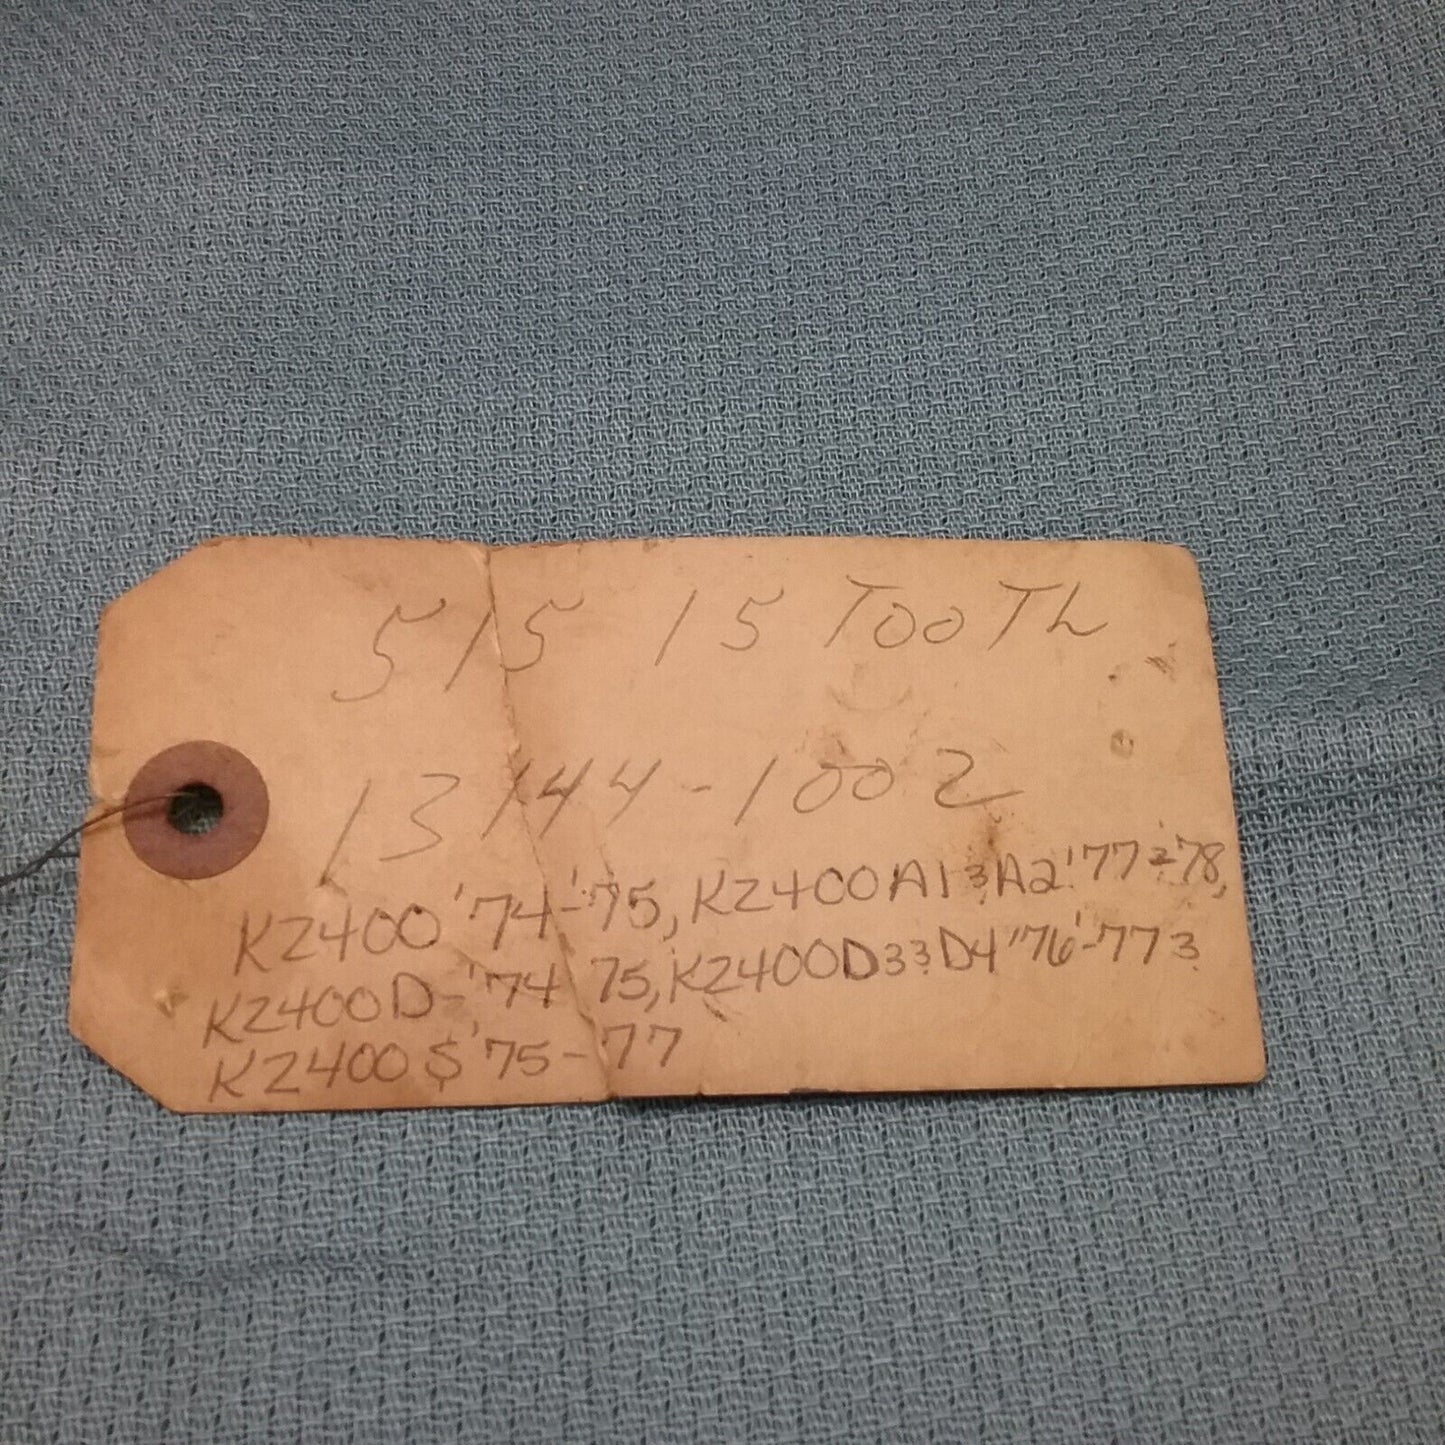 515 15 TOOTh
13144-1002
KZ400 '74-'75, KZ400A1 & A2 '77-'78,
KZ400D-'74 75, KZ400D3 & D4 '76'-77 &
KZ400S '75-'77